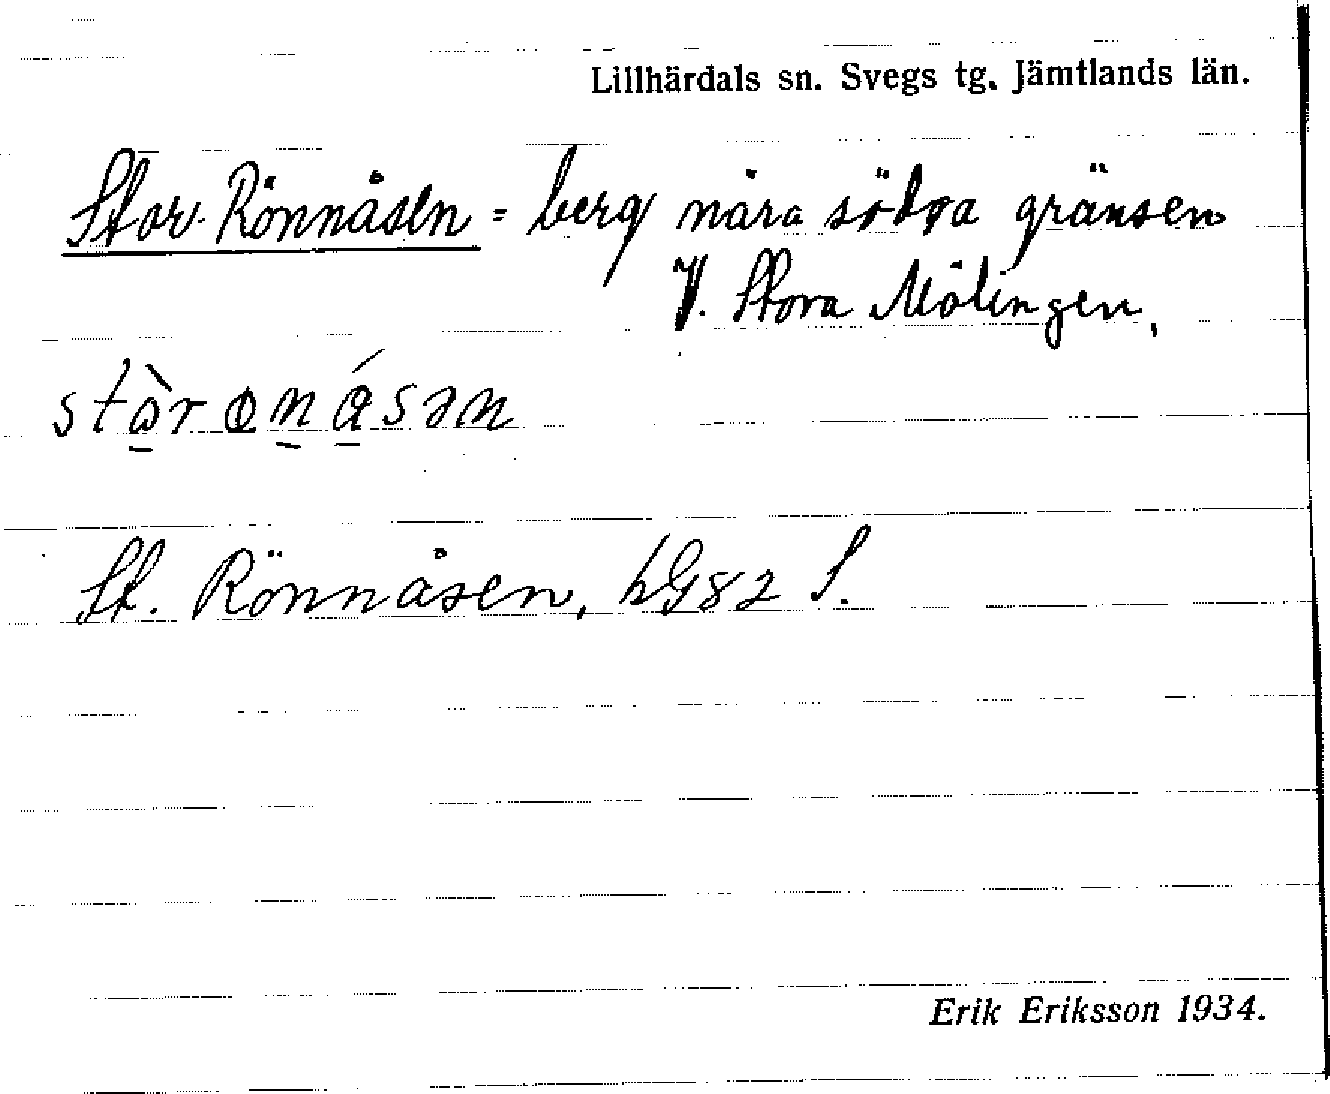 Lillhärdals sn. Svegs tg. Jämtlands län.
Stor-Rönnåsen = berg nära södra gränsen
V. Stora Mölingen.
St. Rönnåsen, hG82 S.
Erik Eriksson 1934.